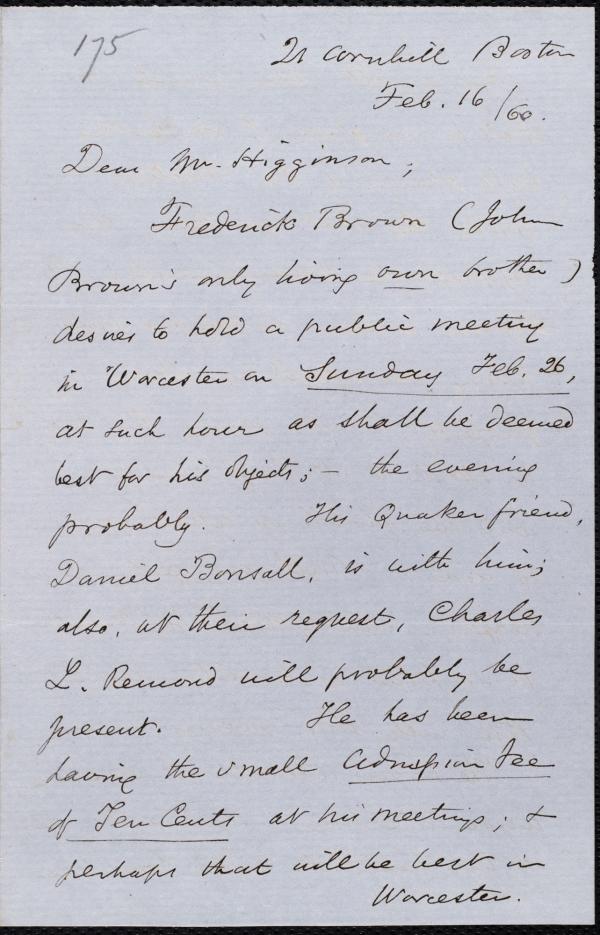 175
21 Cornhill Boston
Feb. 16/60.
Dear Mr. Higginson;
Frederick Brown (John
Brown's only living own brother)
desires to hold a public meeting
in Worcester on Sunday Feb. 26,
at such hour as shall be deemed
best for his objects; – the evening
probably. His Quaker friend,
Daniel Bonsall, is with him;
also, at their request, Charles
L. Remond will probably be
present. He has been
having the small Admission Fee
of Ten Cents at his meetings; &
perhaps that will be best in
Worcester.